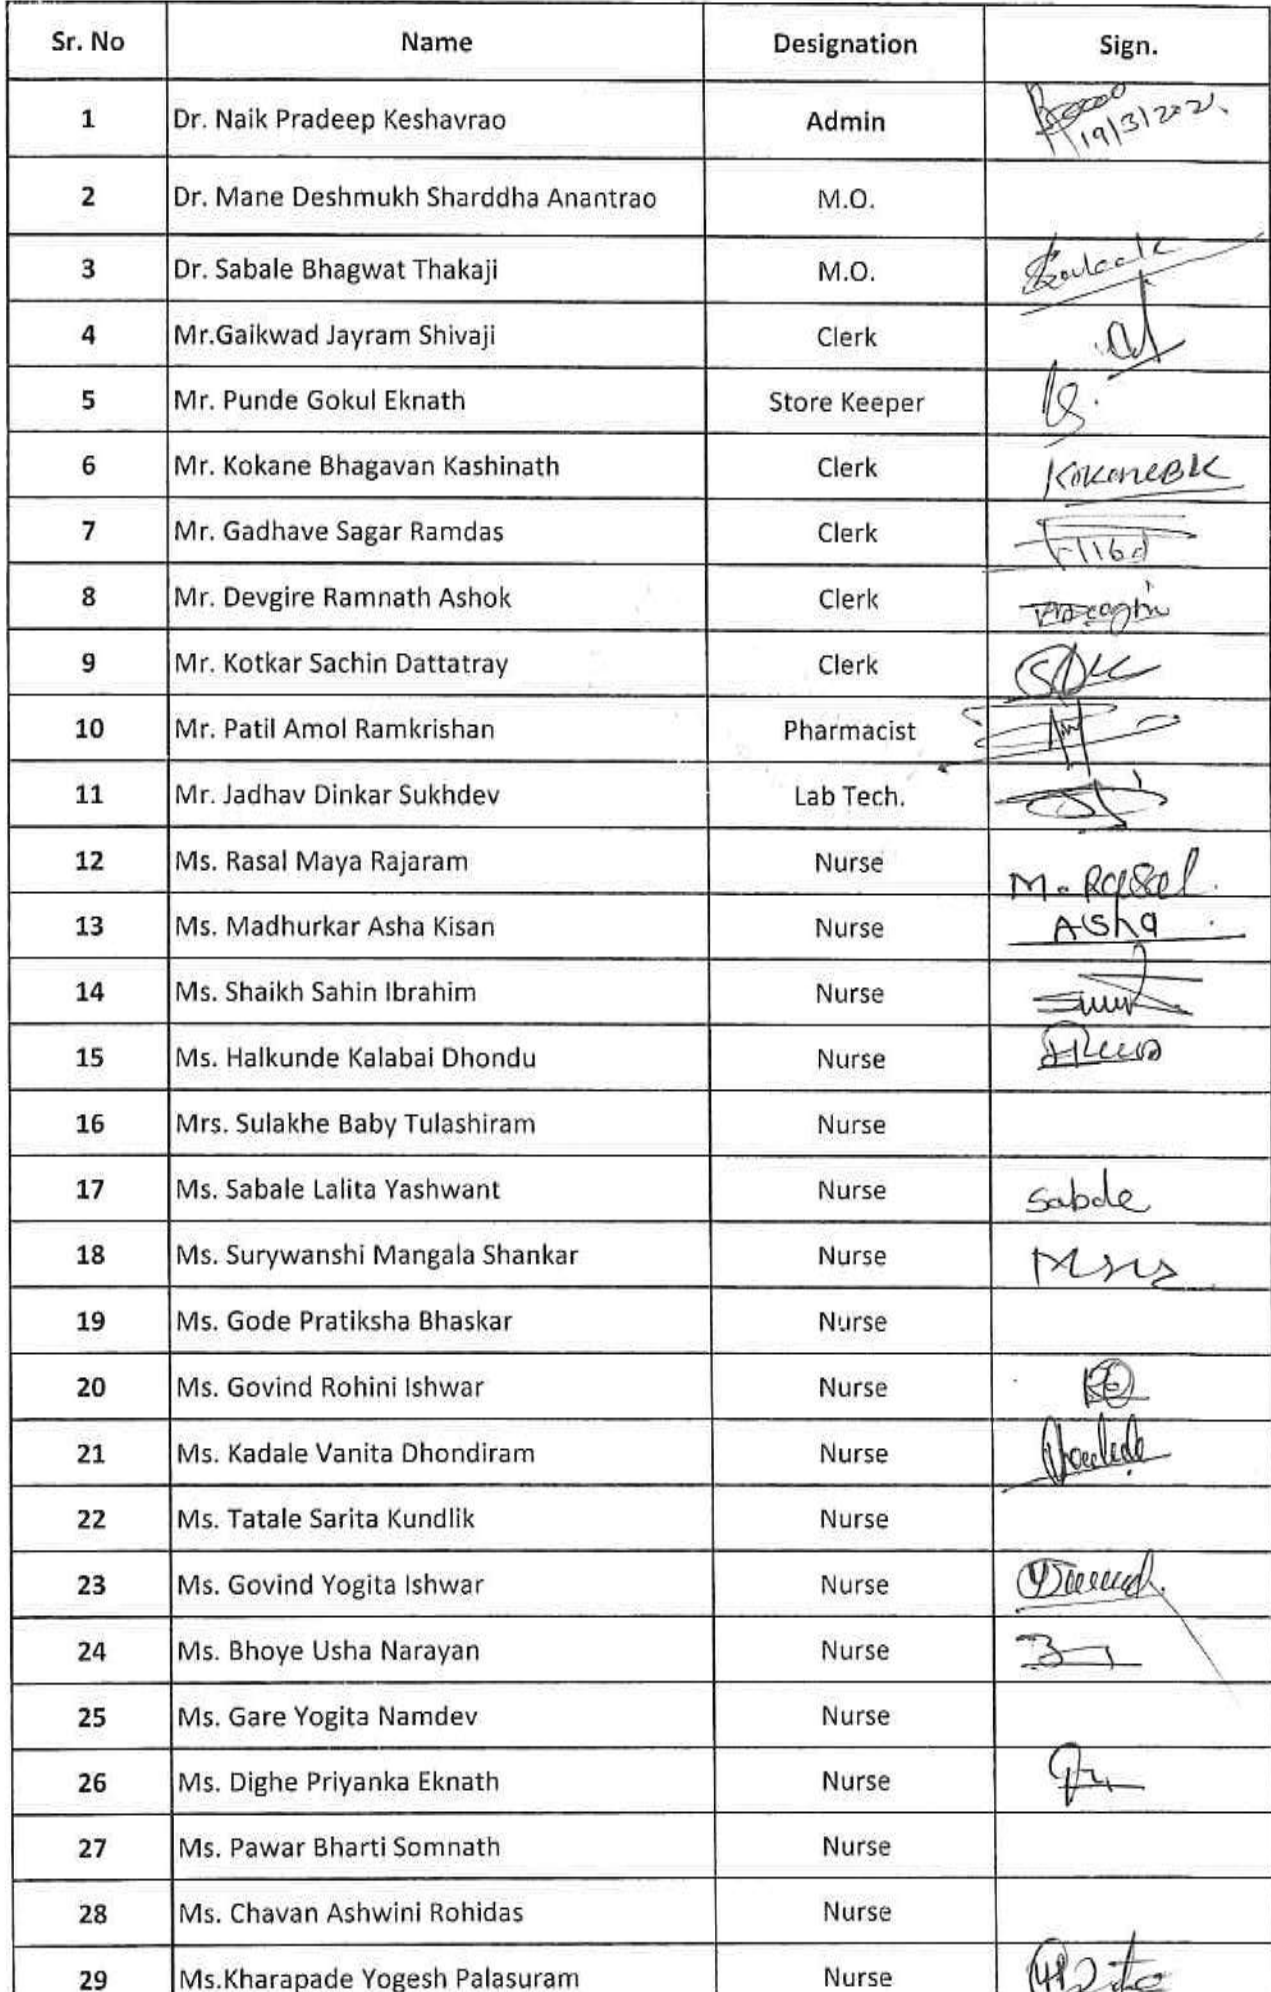 Sr. No Name Designation Sign.
1 Dr. Naik Pradeep Keshavrao Admin 19/3/2021
2 Dr. Mane Deshmukh Sharddha Anantrao M.O.
3 Dr. Sabale Bhagwat Thakaji M.O.
4 Mr.Gaikwad Jayram Shivaji Clerk
5 Mr. Punde Gokul Eknath Store Keeper
6 Mr. Kokane Bhagavan Kashinath Clerk KokaneBK
7 Mr. Gadhave Sagar Ramdas Clerk
8 Mr. Devgire Ramnath Ashok Clerk
9 Mr. Kotkar Sachin Dattatray Clerk
10 Mr. Patil Amol Ramkrishan Pharmacist
11 Mr. Jadhav Dinkar Sukhdev Lab Tech.
12 Ms. Rasal Maya Rajaram Nurse M. Rasal.
13 Ms. Madhurkar Asha Kisan Nurse Asha
14 Ms. Shaikh Sahin Ibrahim Nurse
15 Ms. Halkunde Kalabai Dhondu Nurse
16 Mrs. Sulakhe Baby Tulashiram Nurse
17 Ms. Sabale Lalita Yashwant Nurse Sabale
18 Ms. Surywanshi Mangala Shankar Nurse
19 Ms. Gode Pratiksha Bhaskar Nurse
20 Ms. Govind Rohini Ishwar Nurse
21 Ms. Kadale Vanita Dhondiram Nurse
22 Ms. Tatale Sarita Kundlik Nurse
23 Ms. Govind Yogita Ishwar Nurse
24 Ms. Bhoye Usha Narayan Nurse
25 Ms. Gare Yogita Namdev Nurse
26 Ms. Dighe Priyanka Eknath Nurse
27 Ms. Pawar Bharti Somnath Nurse
28 Ms. Chavan Ashwini Rohidas Nurse
29 Ms.Kharapade Yogesh Palasuram Nurse